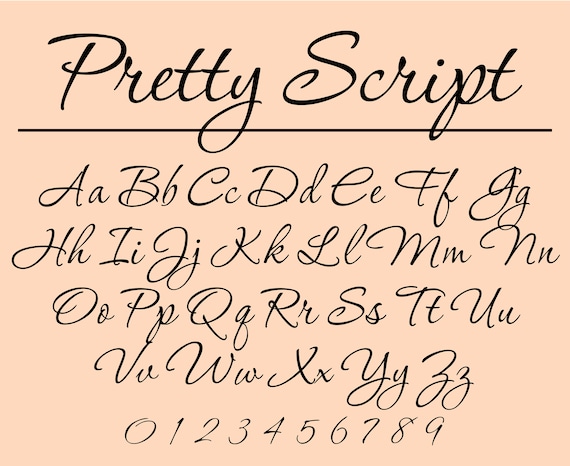 Pretty Script
Aa Bb Cc Dd Ee Ff Gg
Hh Ii Jj Kk Ll Mm Nn
Oo Pp Qq Rr Ss Tt Uu
Vv Ww Xx Yy Zz
0 1 2 3 4 5 6 7 8 9